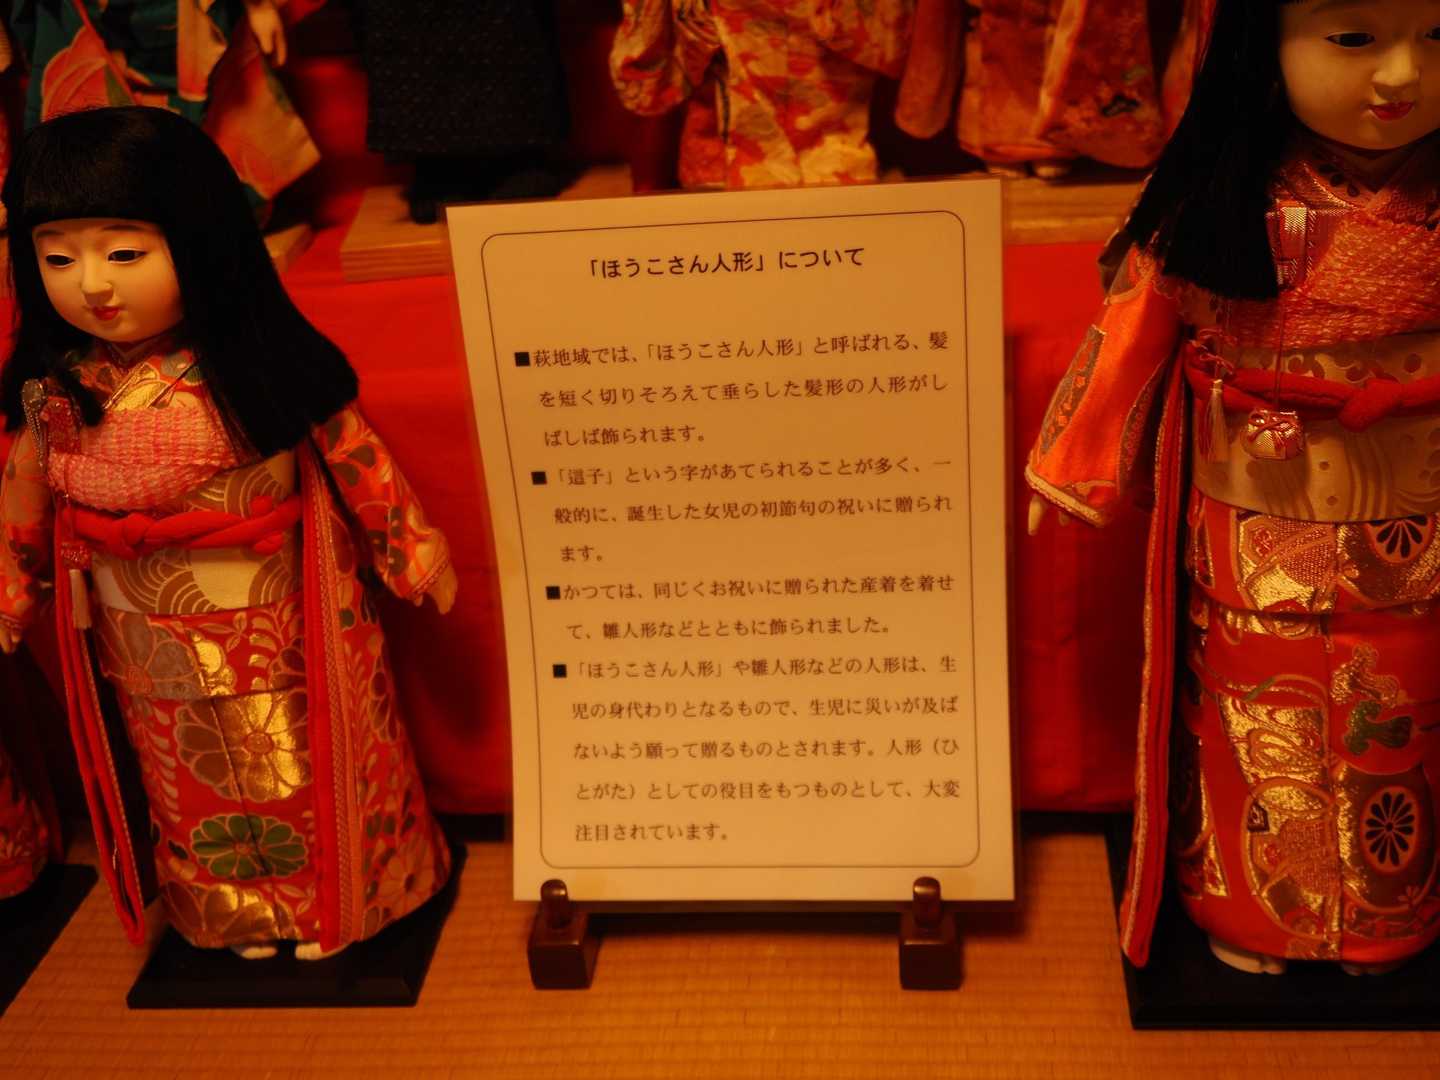 「ほうこさん人形」について
■萩地域では、「ほうこさん人形」と呼ばれる、髪
を短く切りそろえて垂らした髪形の人形がし
ばしば飾られます。
■「這子」という字があてられることが多く、一
般的に、誕生した女児の初節句の祝いに贈られ
ます。
■かつては、同じくお祝いに贈られた産着を着せ
て、雛人形などとともに飾られました。
■「ほうこさん人形」や雛人形などの人形は、生
児の身代わりとなるもので、生児に災いが及ば
ないよう願って贈るものとされます。人形（ひ
とがた）としての役目をもつものとして、大変
注目されています。